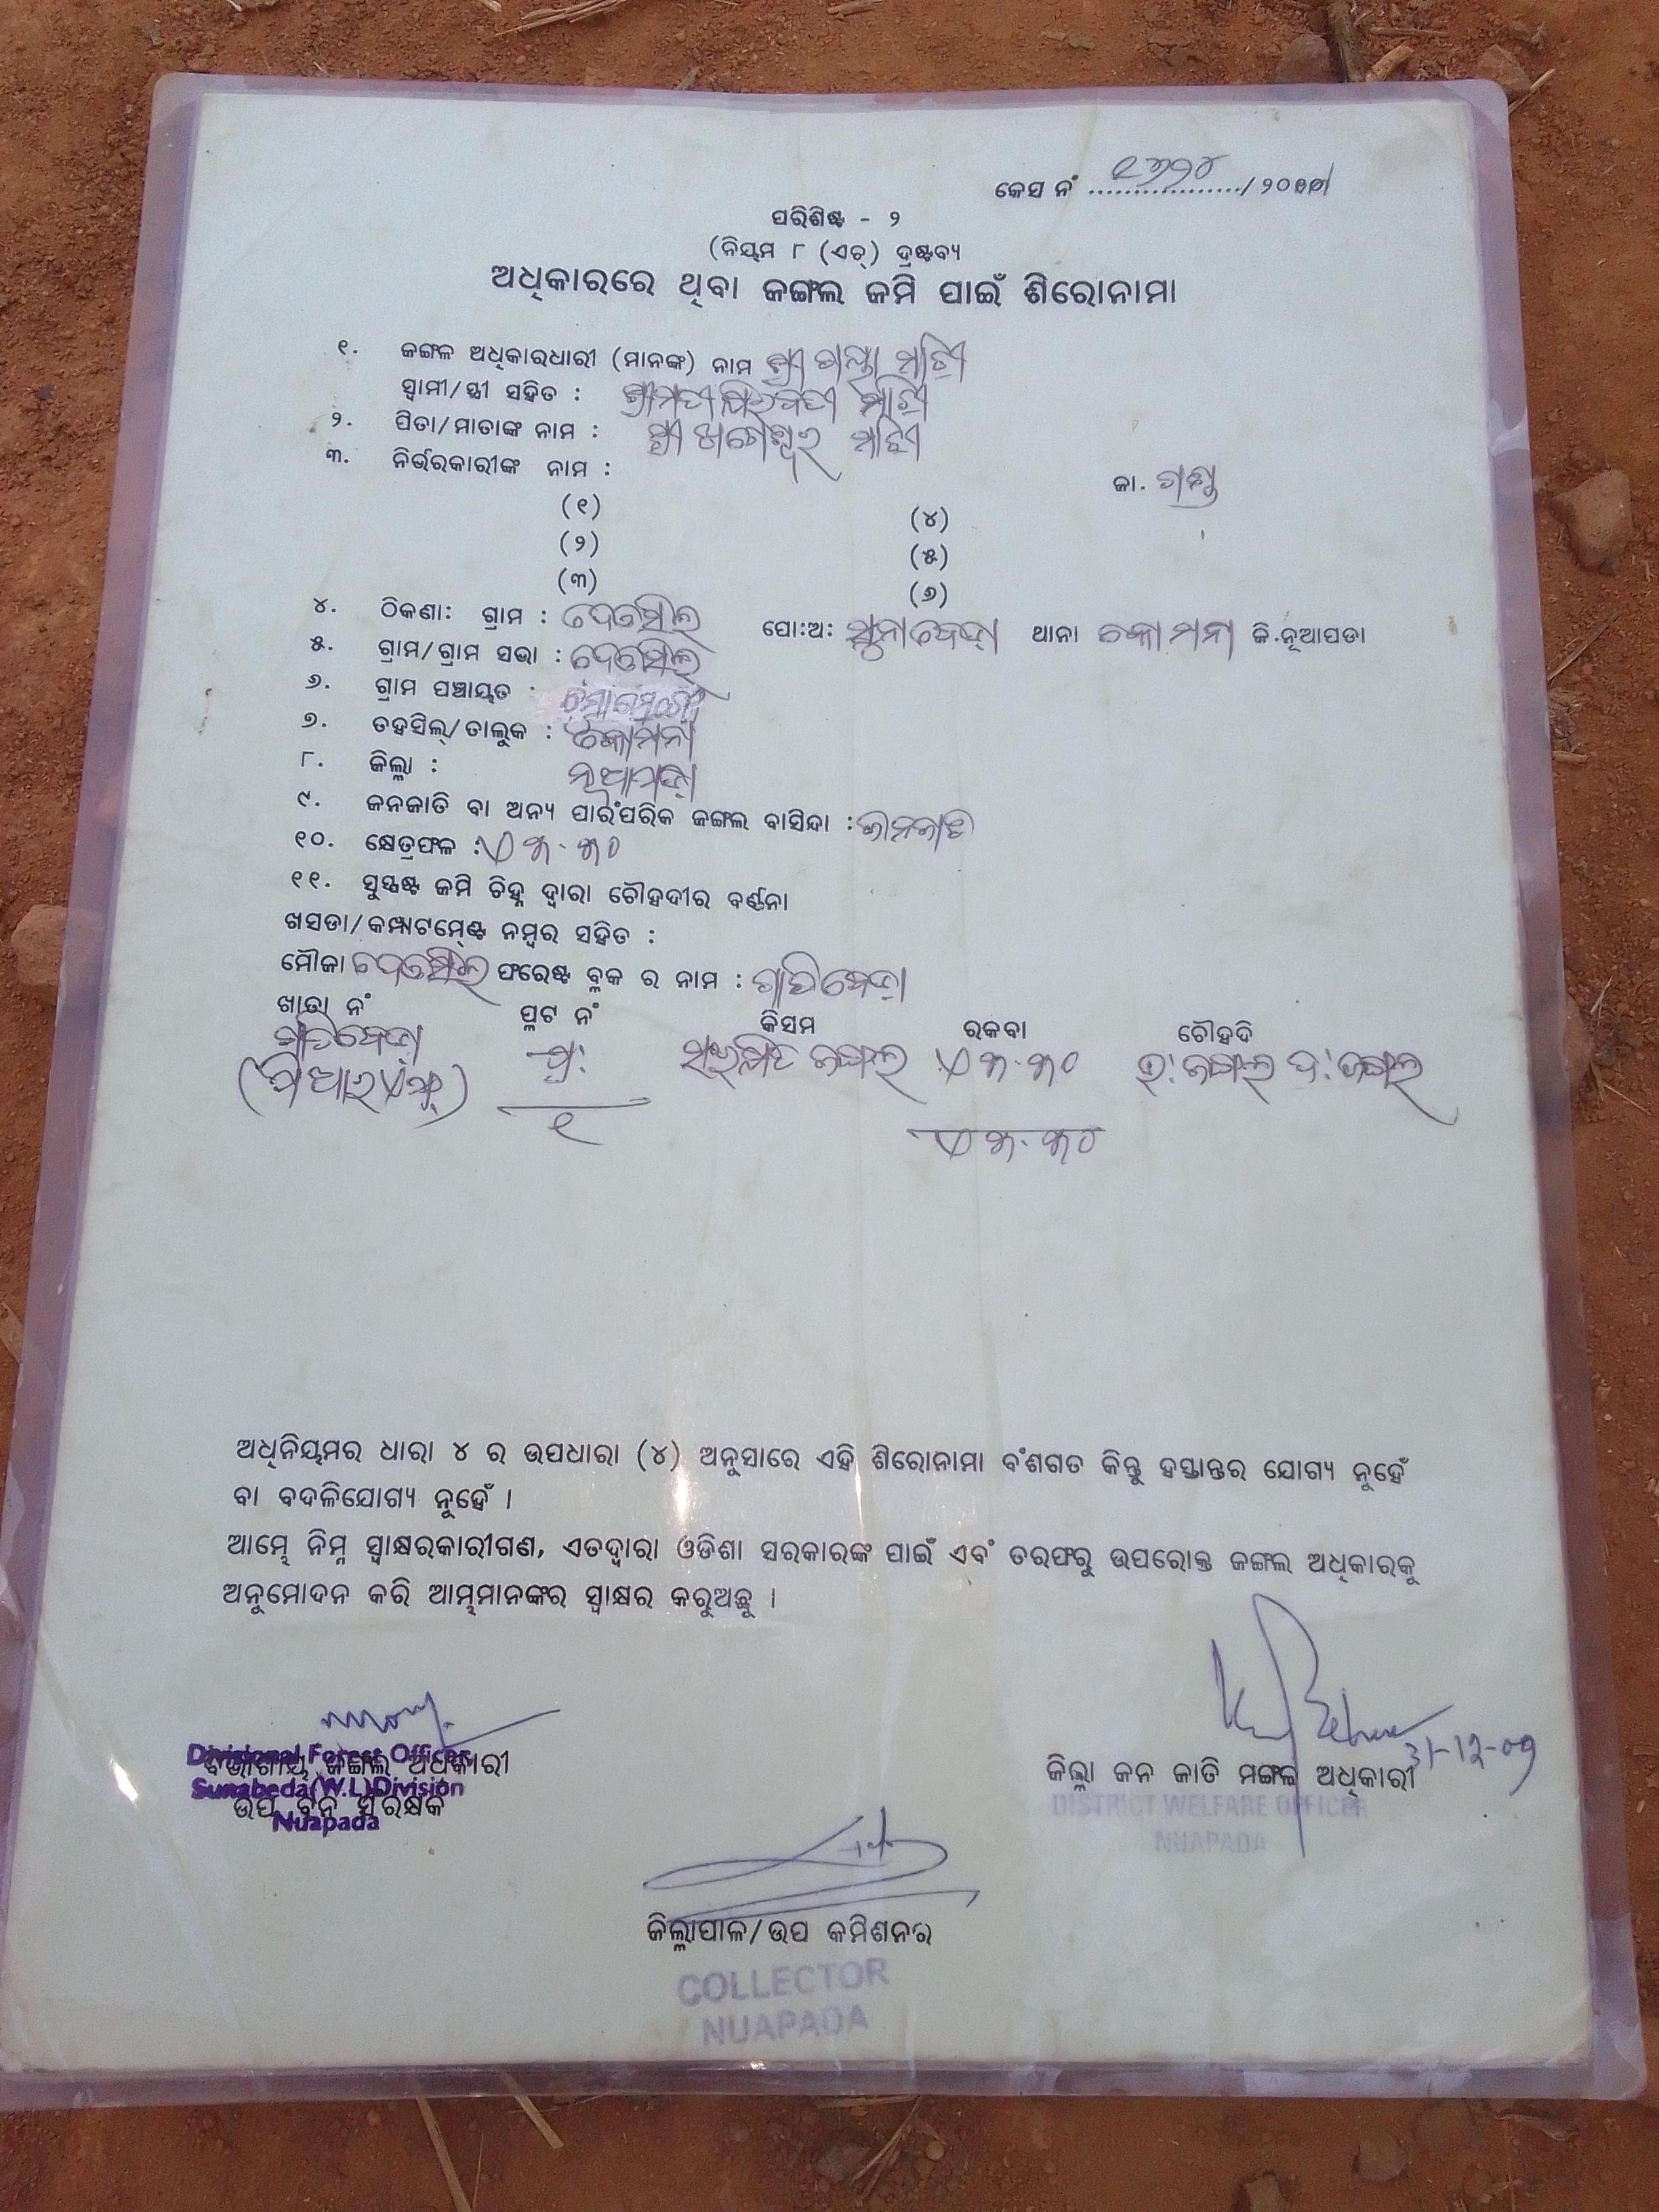 କେସ ନଂ ................./ ୨୦
ପରିଶିଷ୍ଟ - ୨
(ନିୟମ ୮ (ଏଚ୍) ଦ୍ରଷ୍ଟବ୍ୟ
ଅଧିକାରରେ ଥିବା ଜଙ୍ଗଲ ଜମି ପାଇଁ ଶିରୋନାମା
୧. ଜଙ୍ଗଲ ଅଧିକାରଧାରୀ (ମାନଙ୍କ) ନାମ ଶ୍ରୀ ମାଝି
ସ୍ୱାମୀ/ସ୍ତ୍ରୀ ସହିତ : ଶ୍ରୀମତୀ ମାଝି
୨. ପିତା/ମାତାଙ୍କ ନାମ : ଶ୍ରୀ ଖଗେଶ୍ୱର ମାଝି
୩. ନିର୍ଭରକାରୀଙ୍କ ନାମ : ଜା. ଗଣ୍ଡ
(୧) (୪)
(୨) (୫)
(୩) (୬)
୪. ଠିକଣା: ଗ୍ରାମ : ପୋ:ଅ: ସୁନାବେଡ଼ା ଥାନା କୋମନା ଜି.ନୂଆପଡା
୫. ଗ୍ରାମ/ଗ୍ରାମ ସଭା :
୬. ଗ୍ରାମ ପଞ୍ଚାୟତ :
୭. ତହସିଲ୍/ତାଲୁକ : କୋମନା
୮. ଜିଲ୍ଲା : ନୂଆପଡ଼ା
୯. ଜନଜାତି ବା ଅନ୍ୟ ପାରଂପରିକ ଜଙ୍ଗଲ ବାସିନ୍ଦା : ଜନଜାତି
୧୦. କ୍ଷେତ୍ରଫଳ : ଏ ୩.୩୦
୧୧. ସୁସ୍ପଷ୍ଟ ଜମି ଚିହ୍ନ ଦ୍ୱାରା ଚୌହଦୀର ବର୍ଣ୍ଣନା
ଖସଡା/କମ୍ପାଟମେଣ୍ଟ ନମ୍ବର ସହିତ :
ମୌଜା ଫରେଷ୍ଟ ବ୍ଲକ ର ନାମ : ପାତିବେଡ଼ା
ଖାତା ନଂ ପ୍ଲଟ ନଂ କିସମ ରକବା ଚୌହଦି
ପାତିବେଡ଼ା ପ୍ଲ: ସଂରକ୍ଷିତ ଜଙ୍ଗଲ ଏ ୩.୩୦ ଉ: ଜଙ୍ଗଲ ଦ: ଜଙ୍ଗଲ
(ପିଆରଏଫ୍) ୧ ଏ ୩.୩୦
ଅଧିନିୟମର ଧାରା ୪ ର ଉପଧାରା (୪) ଅନୁସାରେ ଏହି ଶିରୋନାମା ବଂଶଗତ କିନ୍ତୁ ହସ୍ତାନ୍ତର ଯୋଗ୍ୟ ନୁହେଁ
ବା ବଦଳିଯୋଗ୍ୟ ନୁହେଁ ।
ଆମ୍ଭେ ନିମ୍ନ ସ୍ୱାକ୍ଷରକାରୀଗଣ, ଏତଦ୍ୱାରା ଓଡିଶା ସରକାରଙ୍କ ପାଇଁ ଏବଂ ତରଫରୁ ଉପରୋକ୍ତ ଜଙ୍ଗଲ ଅଧିକାରକୁ
ଅନୁମୋଦନ କରି ଆମ୍ଭମାନଙ୍କର ସ୍ୱାକ୍ଷର କରୁଅଛୁ ।
31-12-09
Divisional Forest Officer
ବିଭାଗୀୟ ଜଙ୍ଗଲ ଅଧିକାରୀ ଜିଲ୍ଲା ଜନ ଜାତି ମଙ୍ଗଳ ଅଧିକାରୀ
Sunabeda(W.L)Division DISTRICT WELFARE OFFICER
ଉପ ବନ ସଂରକ୍ଷକ
Nuapada NUAPADA
ଜିଲ୍ଲାପାଳ/ଉପ କମିଶନର
COLLECTOR
NUAPADA